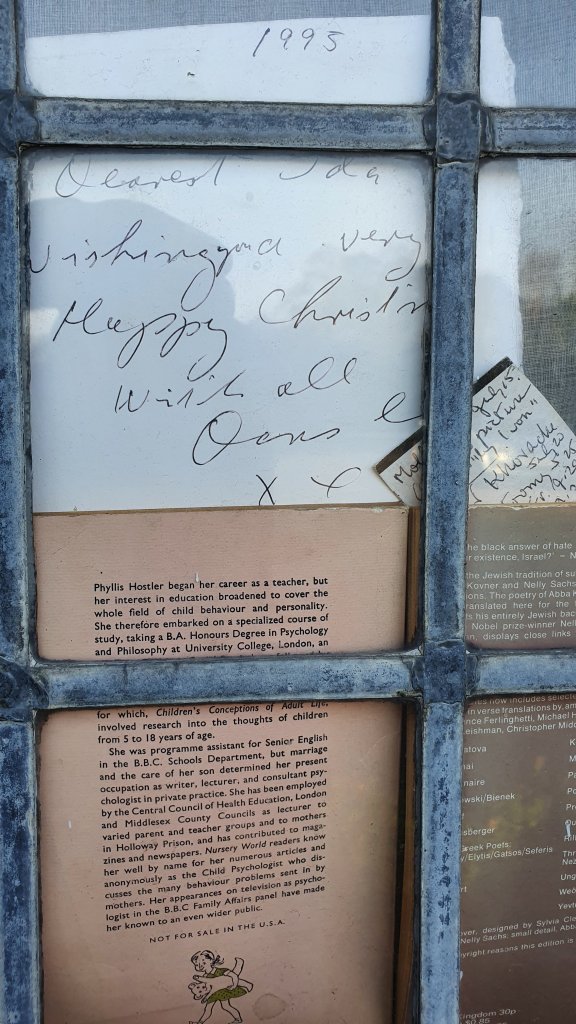 1995
Dearest Ida
Wishing you a very
Happy Christm
With all
X X
July 15.
"picture
I won"
Khovacke
from
Phyllis Hostler began her career as a teacher, but
her interest in education broadened to cover the
whole field of child behaviour and personality.
She therefore embarked on a specialized course of
study, taking a B.A. Honours Degree in Psychology
and Philosophy at University College, London, an
for which, Children's Conceptions of Adult Life,
involved research into the thoughts of children
from 5 to 18 years of age.
She was programme assistant for Senior English
in the B.B.C. Schools Department, but marriage
and the care of her son determined her present
occupation as writer, lecturer, and consultant psy-
chologist in private practice. She has been employed
by the Central Council of Health Education, London
and Middlesex County Councils as lecturer to
varied parent and teacher groups and to mothers
in Holloway Prison, and has contributed to maga-
zines and newspapers. Nursery World readers know
her well by name for her numerous articles and
anonymously as the Child Psychologist who dis-
cusses the many behaviour problems sent in by
mothers. Her appearances on television as psycho-
logist in the B.B.C Family Affairs panel have made
her known to an even wider public.
NOT FOR SALE IN THE U.S.A.
he black answer of hate
r existence, Israel?' – N
the Jewish tradition of su
Kovner and Nelly Sachs
ions. The poetry of Abba K
translated here for the
ts his entirely Jewish bac
Nobel prize-winner Nell
n, displays close links
ves now includes selecte
in verse translations by, am
nce Ferlinghetti, Michael H
eishman, Christopher Midd
atova
nai
naire
wski/Bienek
sberger
reek Poets:
y/Elytis/Gatsos/Seferis
rt
ht
over, designed by Sylvia Cle
Nelly Sachs; small detail, Abba
yright reasons this edition is
ingdom 30p
$0.85